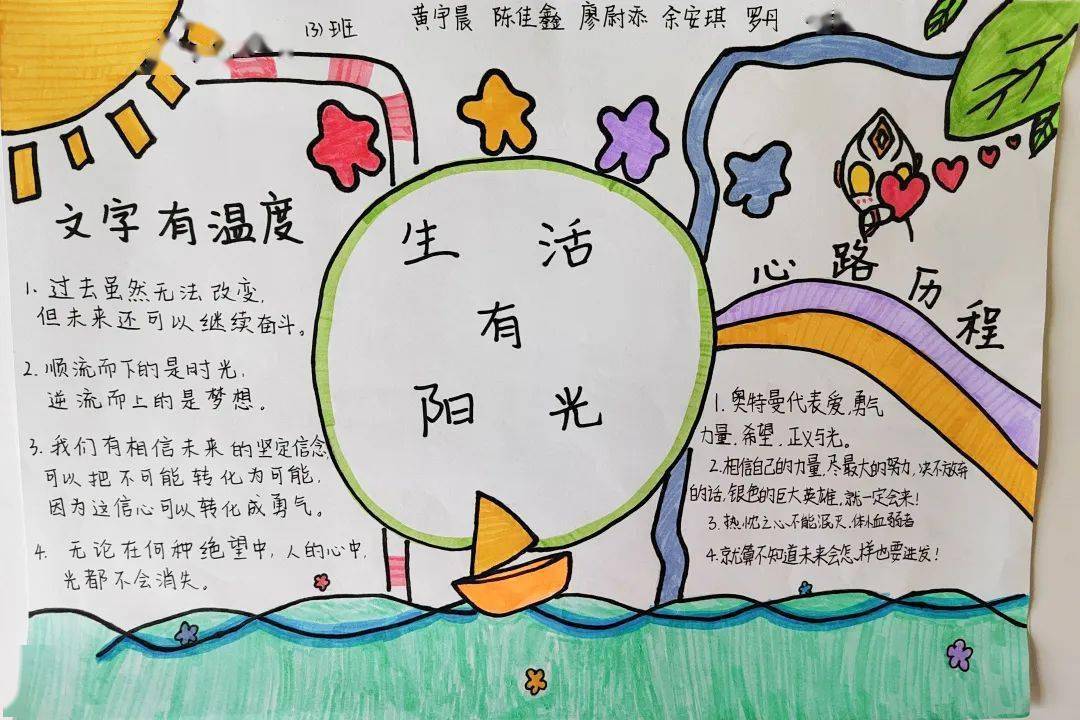 (3)班 黄宇晨 陈佳鑫 廖尉添 余安琪 罗丹
文字有温度
1. 过去虽然无法改变,
但未来还可以继续奋斗。
2. 顺流而下的是时光,
逆流而上的是梦想。
3. 我们有相信未来的坚定信念
可以把不可能转化为可能,
因为这信心可以转化成勇气。
4. 无论在何种绝望中,人的心中,
光都不会消失。
生活
有
阳光
心路历程
1. 奥特曼代表爱,勇气
力量,希望,正义与光。
2. 相信自己的力量,尽最大的努力,决不放弃
的话,银色的巨大英雄,就一定会来!
3. 热忱之心不能泯灭,体恤弱者
4. 就算不知道未来会怎样也要进发!